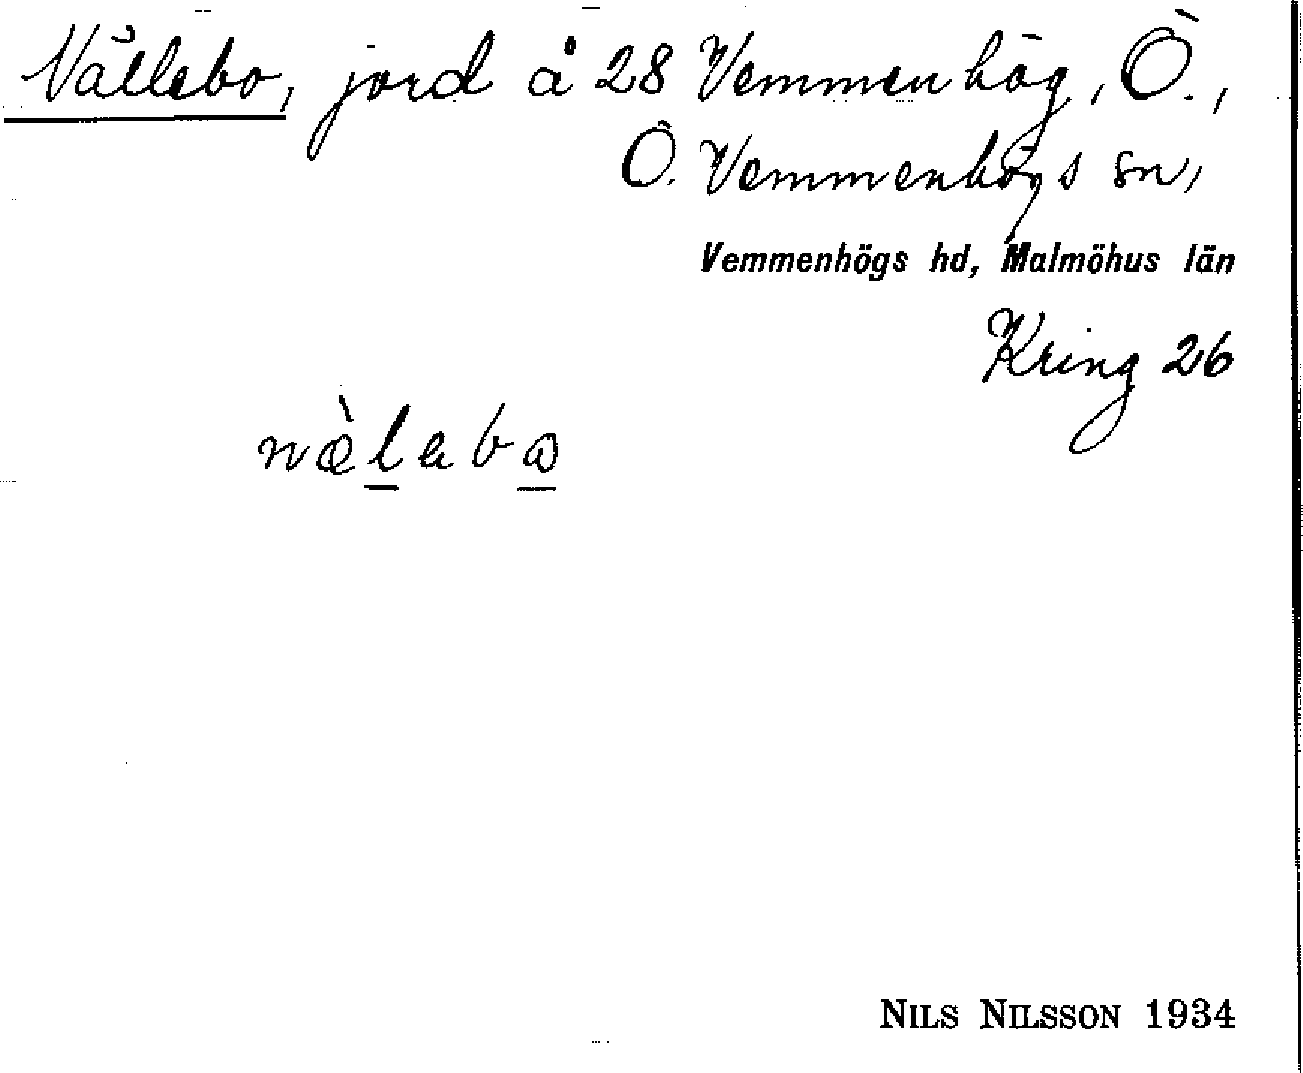 Nällebo, jord å 28 Vemmenhög, Ö.,
Ö. Vemmenhögs sn,
Vemmenhögs hd, Malmöhus län
Kring 26
nælabo
NILS NILSSON 1934